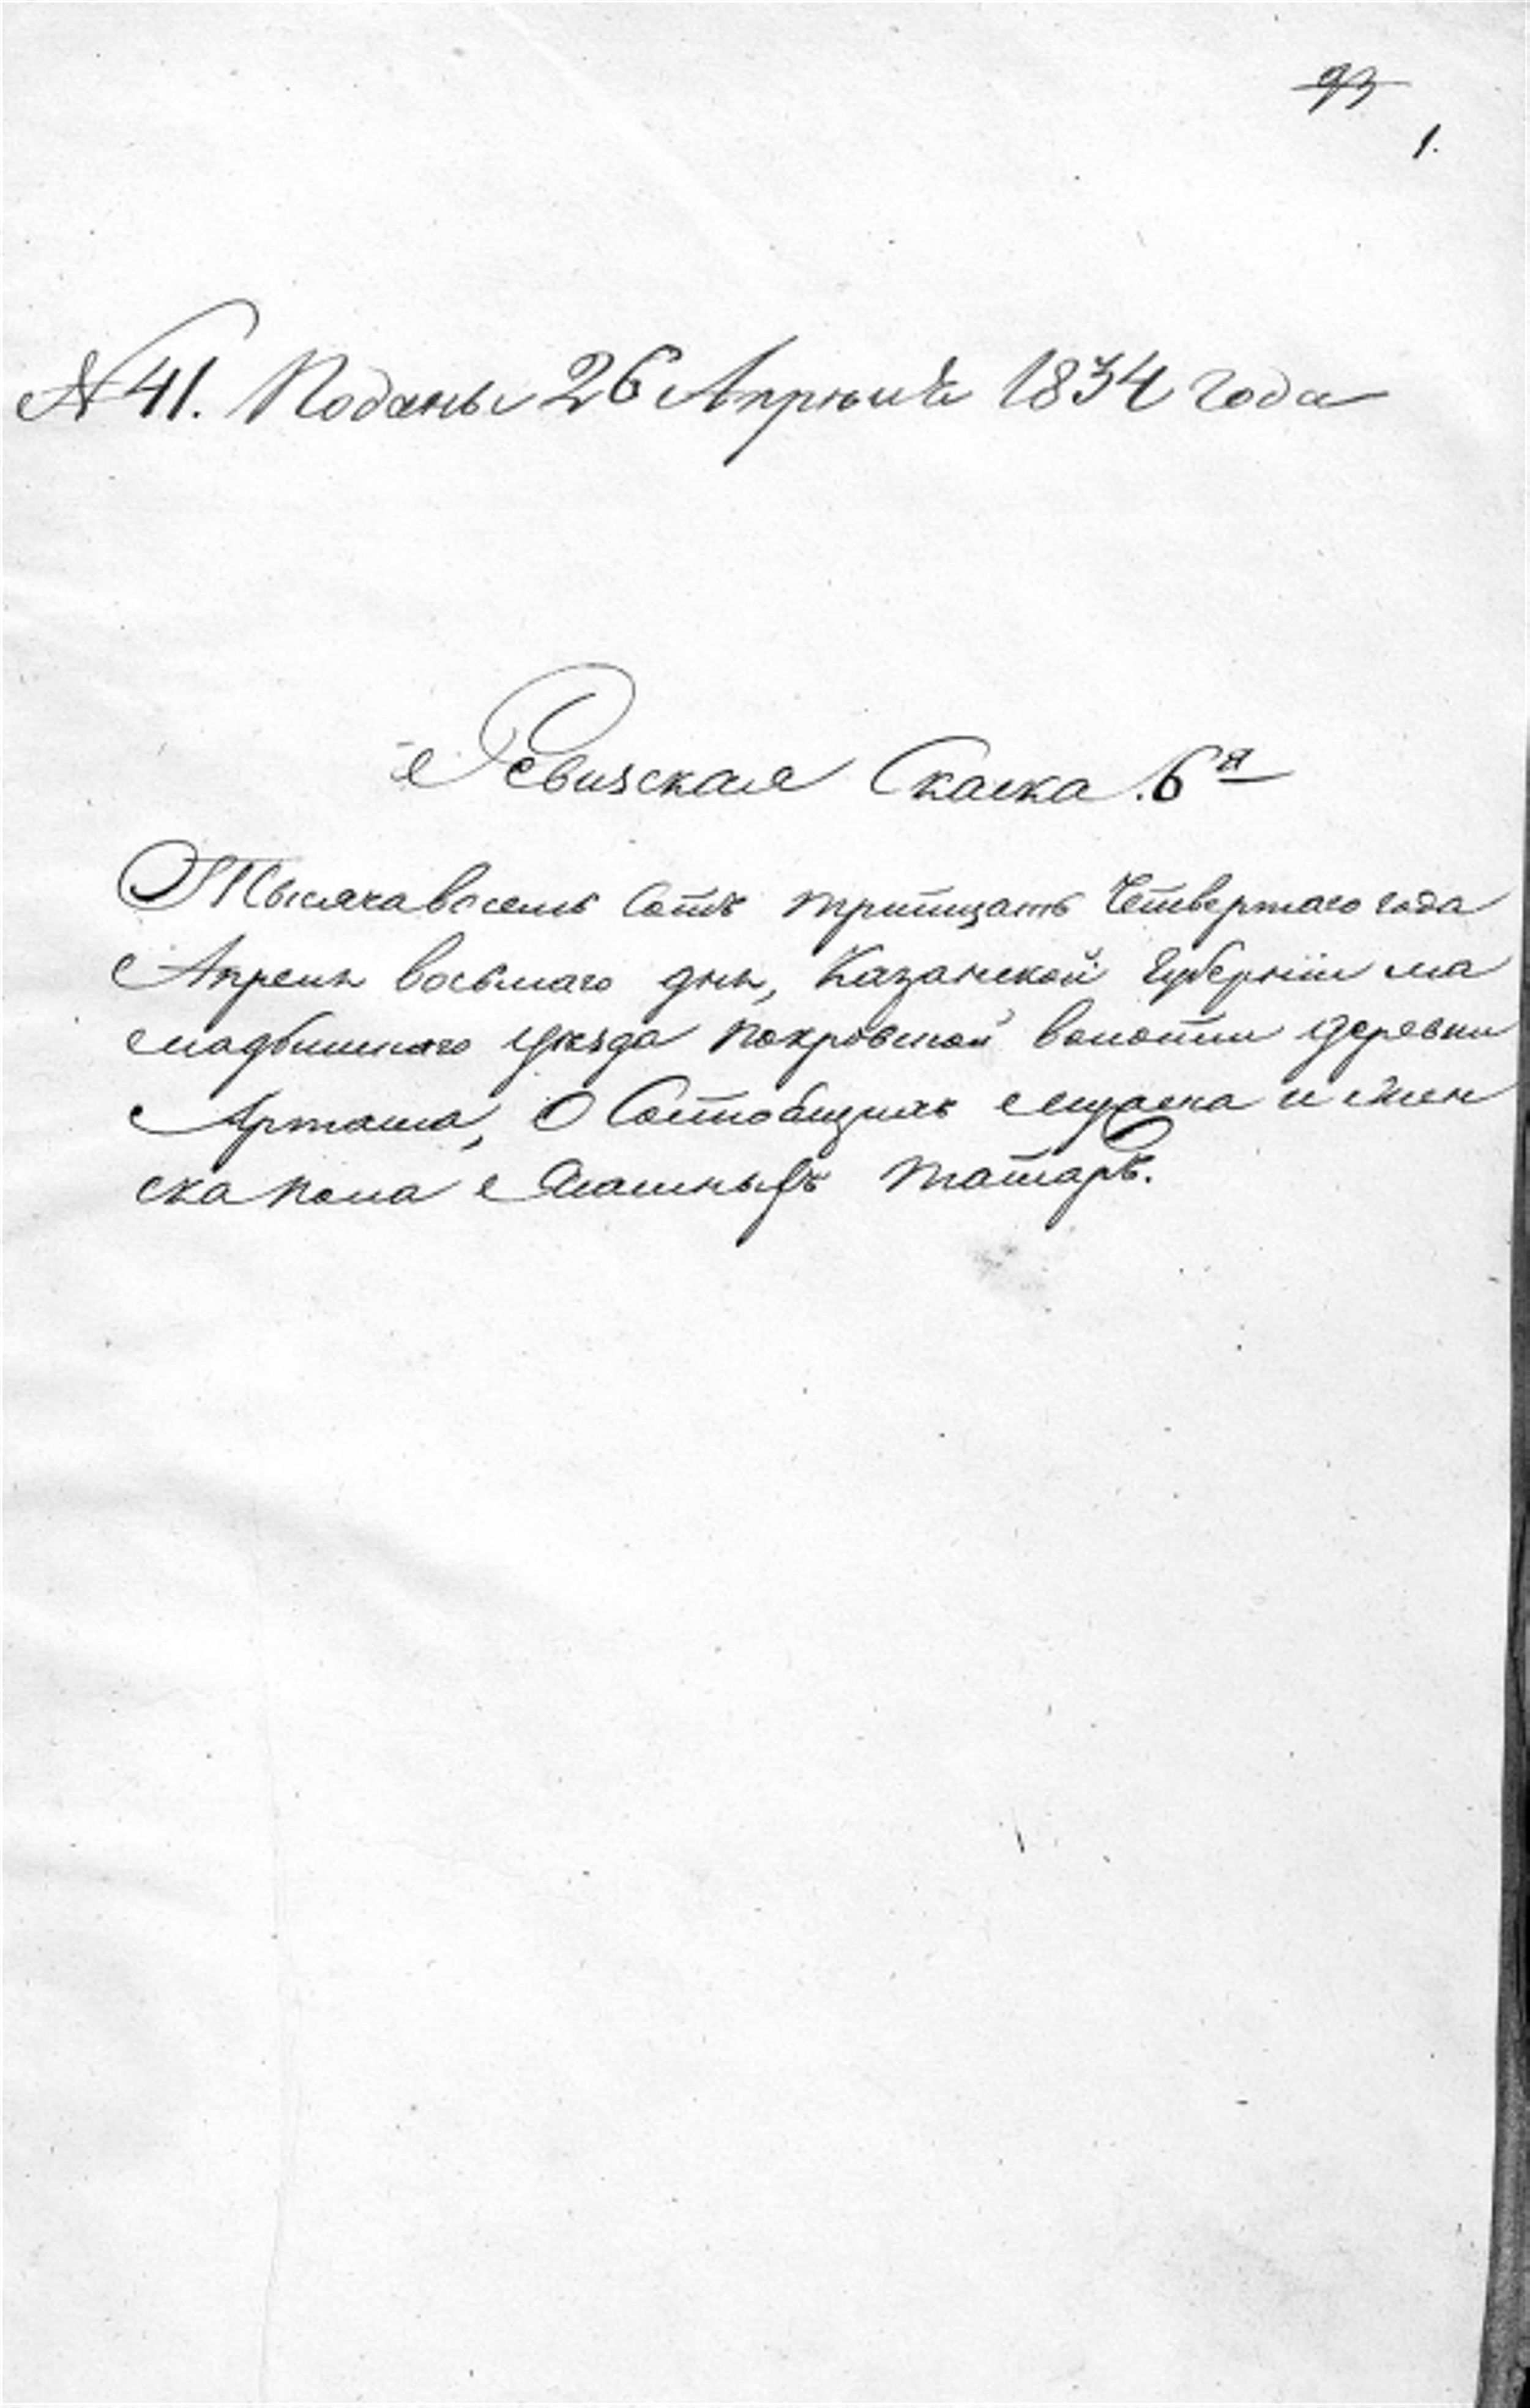 93
1.
№ 41. Поданы 26 Апреля 1834 года
Ревизская Скаска. 6я
Тысяча восемь сотъ тритцать Четвертаго года
Апреля восьмаго дня, Казанской Губернiи ма
мадышскаго уезда покровской волости деревни
Арташа, О Состоящихъ мужеска и жен
ска пола Ясашныхъ татаръ.